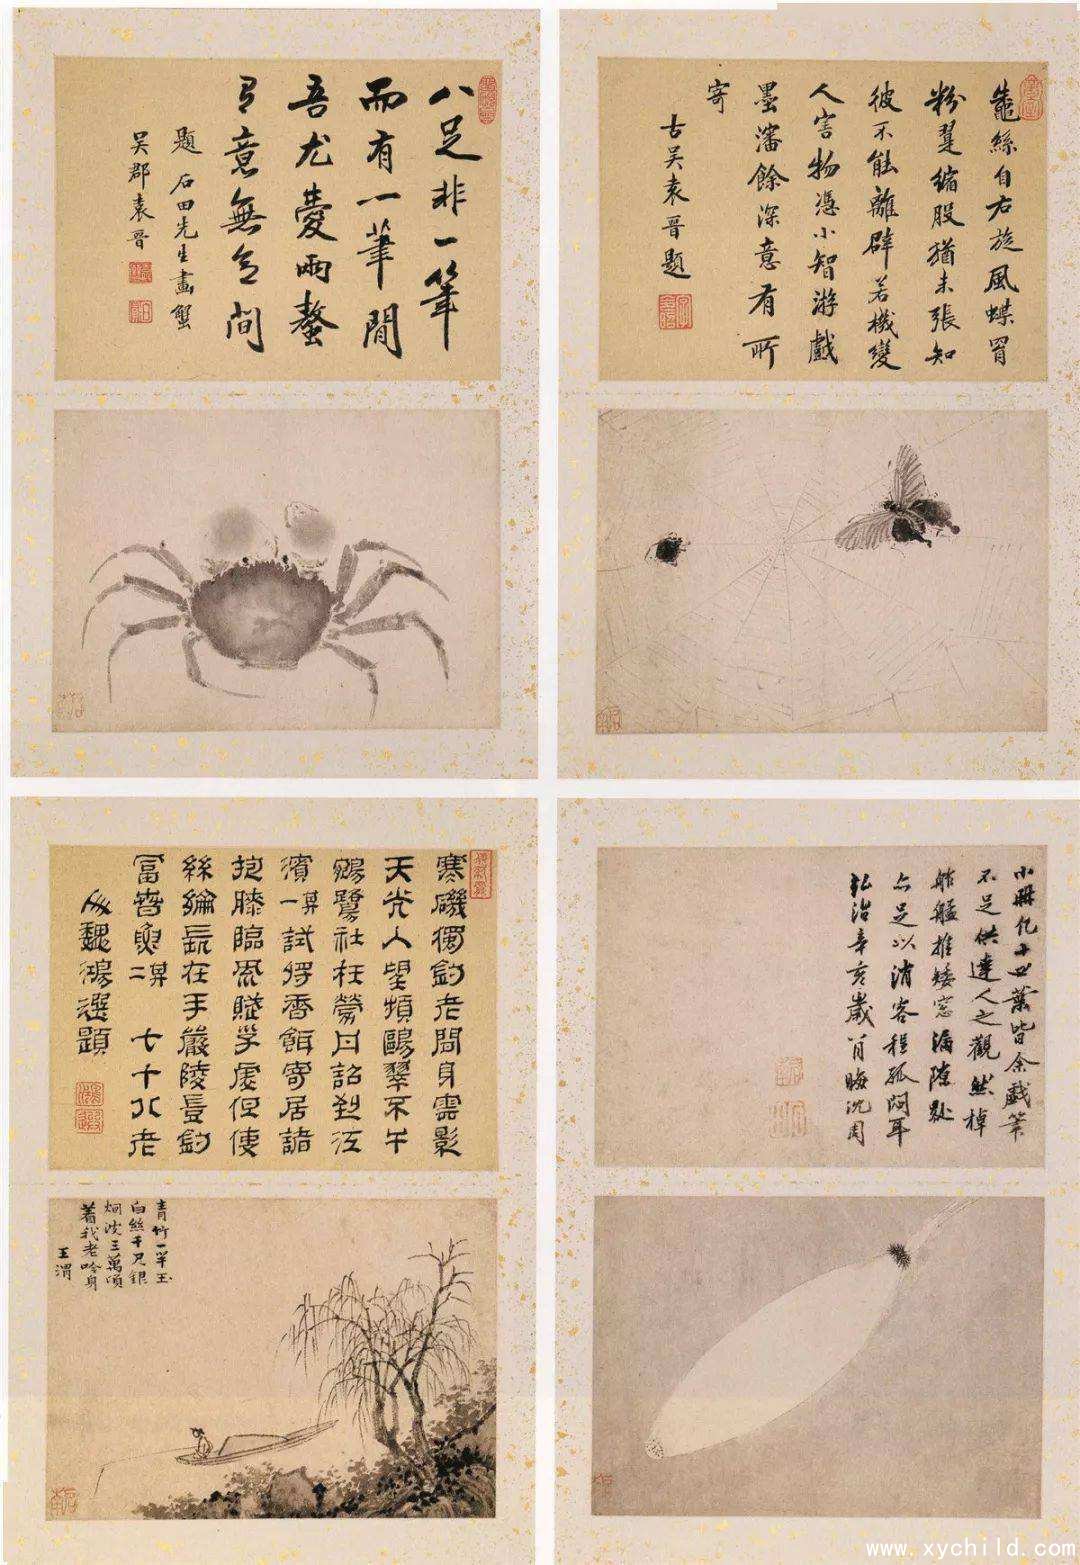 八足非一筆
而有一筆間
吾尤愛兩螯
意無間
題石田先生畫蟹
吳郡袁晉
鼅絲自右旋風蝶罥
粉翼縮股猶未張知
彼不能離辟若機變
人害物憑小智游戲
墨瀋餘深意有所
寄
古吳袁晉題
寒磯獨釣老閒身雲影
天光入望頻鷗不
鷺社枉勞丹詔到江
濱其一試將香餌寄居諸
抱膝臨風賦子虛但使
絲綸長在手嚴陵豈釣
富春魚其二七十八老
人魏鴻選題
青竹一竿玉
白絲千尺銀
烟波三萬頃
著我老吟身
王渭
小冊十四葉皆余戲筆
不足供達人之觀然棹
舴艋推矮窗
亦足以消客程孤悶耳
弘治辛亥歲晦沈周
www.xychild.com